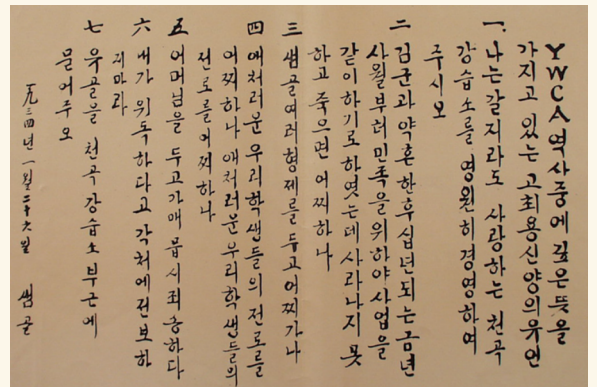 YWCA 역사중에 깊은 뜻을
가지고 있는 고최용신양의 유언
一. 나는 갈지라도 사랑하는 천곡
강습소를 영원히 경영하여
주시오
二 김군과 약혼한후 십년되는 금년
사월부터 민족을 위하야 사업을
같이하기로 하엿는데 사라나지 못
하고 죽으면 어찌하나
三 샘골 여러형제를 두고 어찌가나
四 애처러운 우리학생들의 전로를
어찌하나 애처러운 우리학생들의
전로를 어찌하나
五 어머님을 두고가매 몹시 죄송하다
六 내가 위독하다고 각처에 전보하
지마라
七 유골을 천곡강습소 부근에
묻어주오
一九三四년 一월 二十六일 샘골